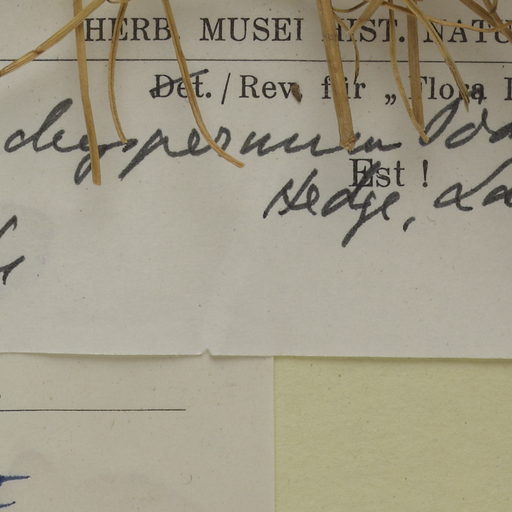 HERB. MUSEI HIST. NATU
Det. / Rev. für „Flora I
chyspermum
Est !
Hedge, La